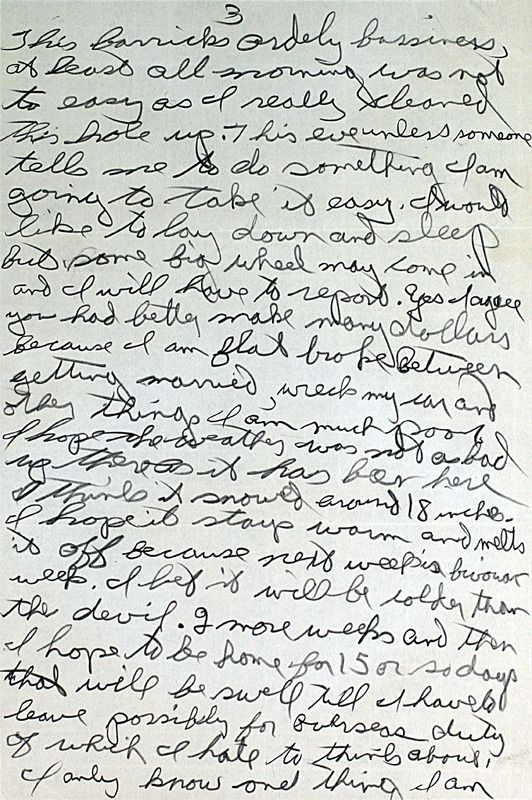 3
This barricks ordely bassiness,
at least all morning was not
to easy as I really cleaned
this hole up. This eve unless someone
tells me to do something I am
going to take it easy. I would
like to lay down and sleep
but some big wheel may come in
and I will have to report. Yes I agree
you had better make many dollars
because I am flat broke. Between
getting married, wreck my car and
other things I am much poor.
I hope the weather was not as bad
up there as it has been here
I think it snowed around 18 inches.
I hope it stays warm and melts
it off because next week is bivouac
week. I bet it will be colder than
the devil. 9 more weeks and then
I hope to be home for 15 or so days
that will be swell till I have to
leave possibly for overseas duty
of which I hate to think about,
I only know one thing I am